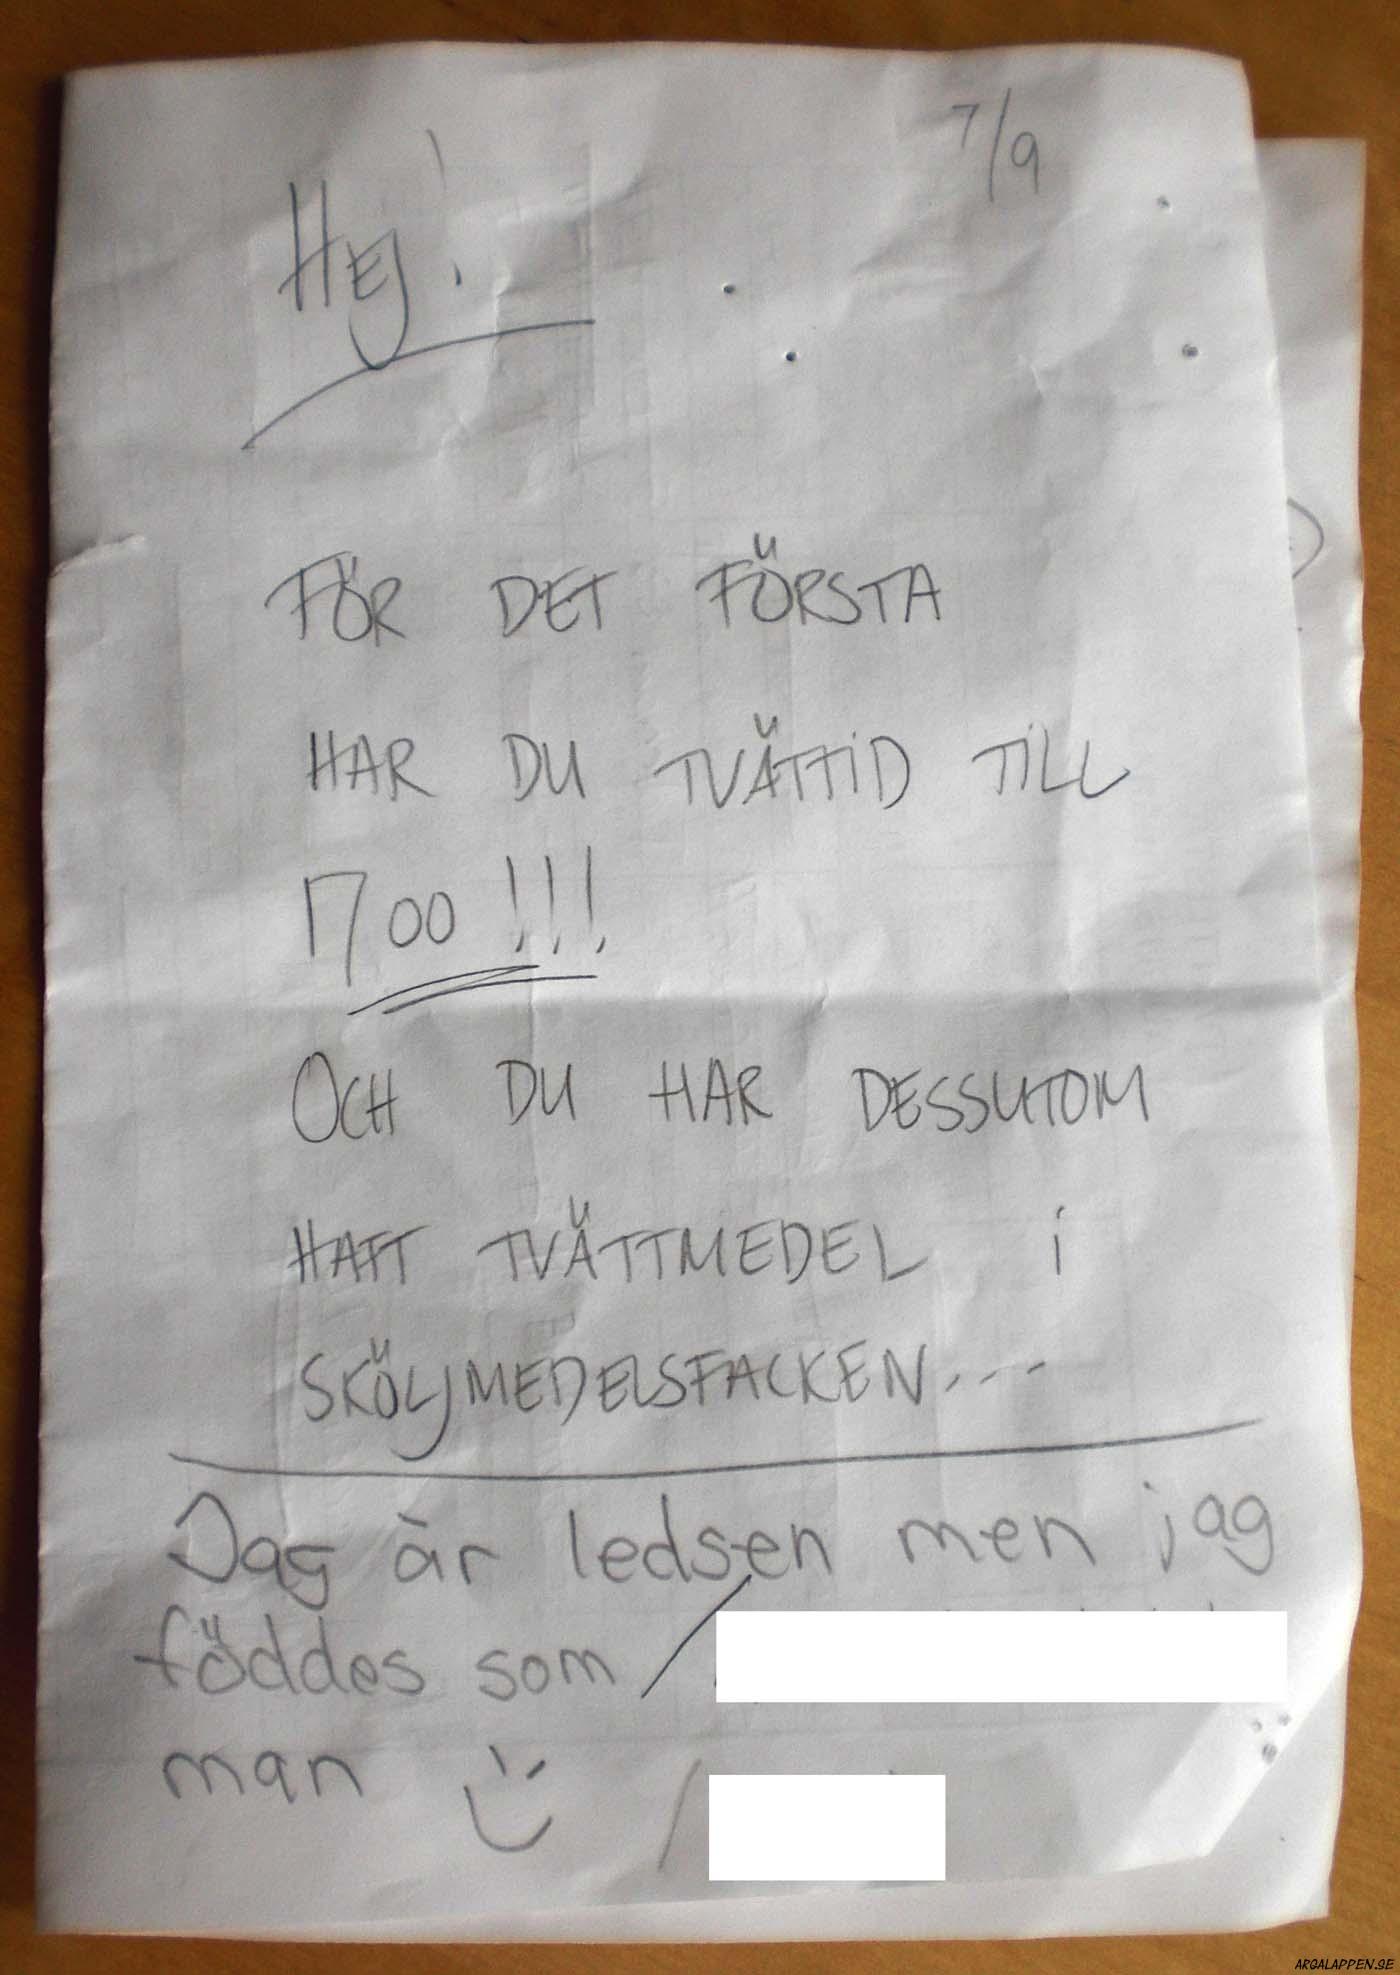 7/9
Hej!
FÖR DET FÖRSTA
HAR DU TVÄTTID TILL
1700 !!!
OCH DU HAR DESSUTOM
HAFT TVÄTTMEDEL i
SKÖLJMEDELSFACKEN...
Jag är ledsen men jag
föddes som /
man /
ARGALAPPEN.SE